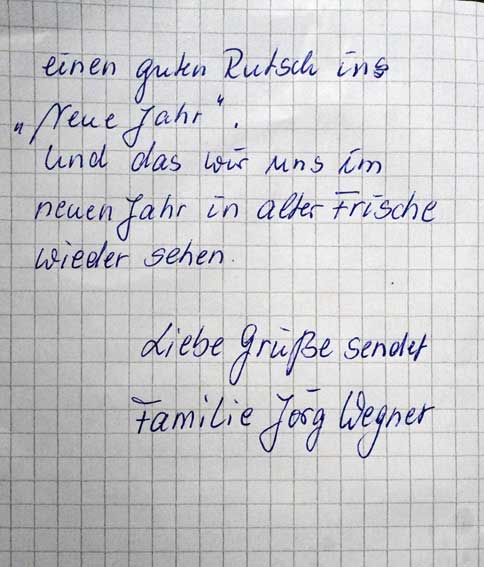 einen guten Rutsch ins
„Neue Jahr".
Und das wir uns im
neuen Jahr in alter Frische
wieder sehen.
Liebe Grüße sendet
Familie Jörg Wegner